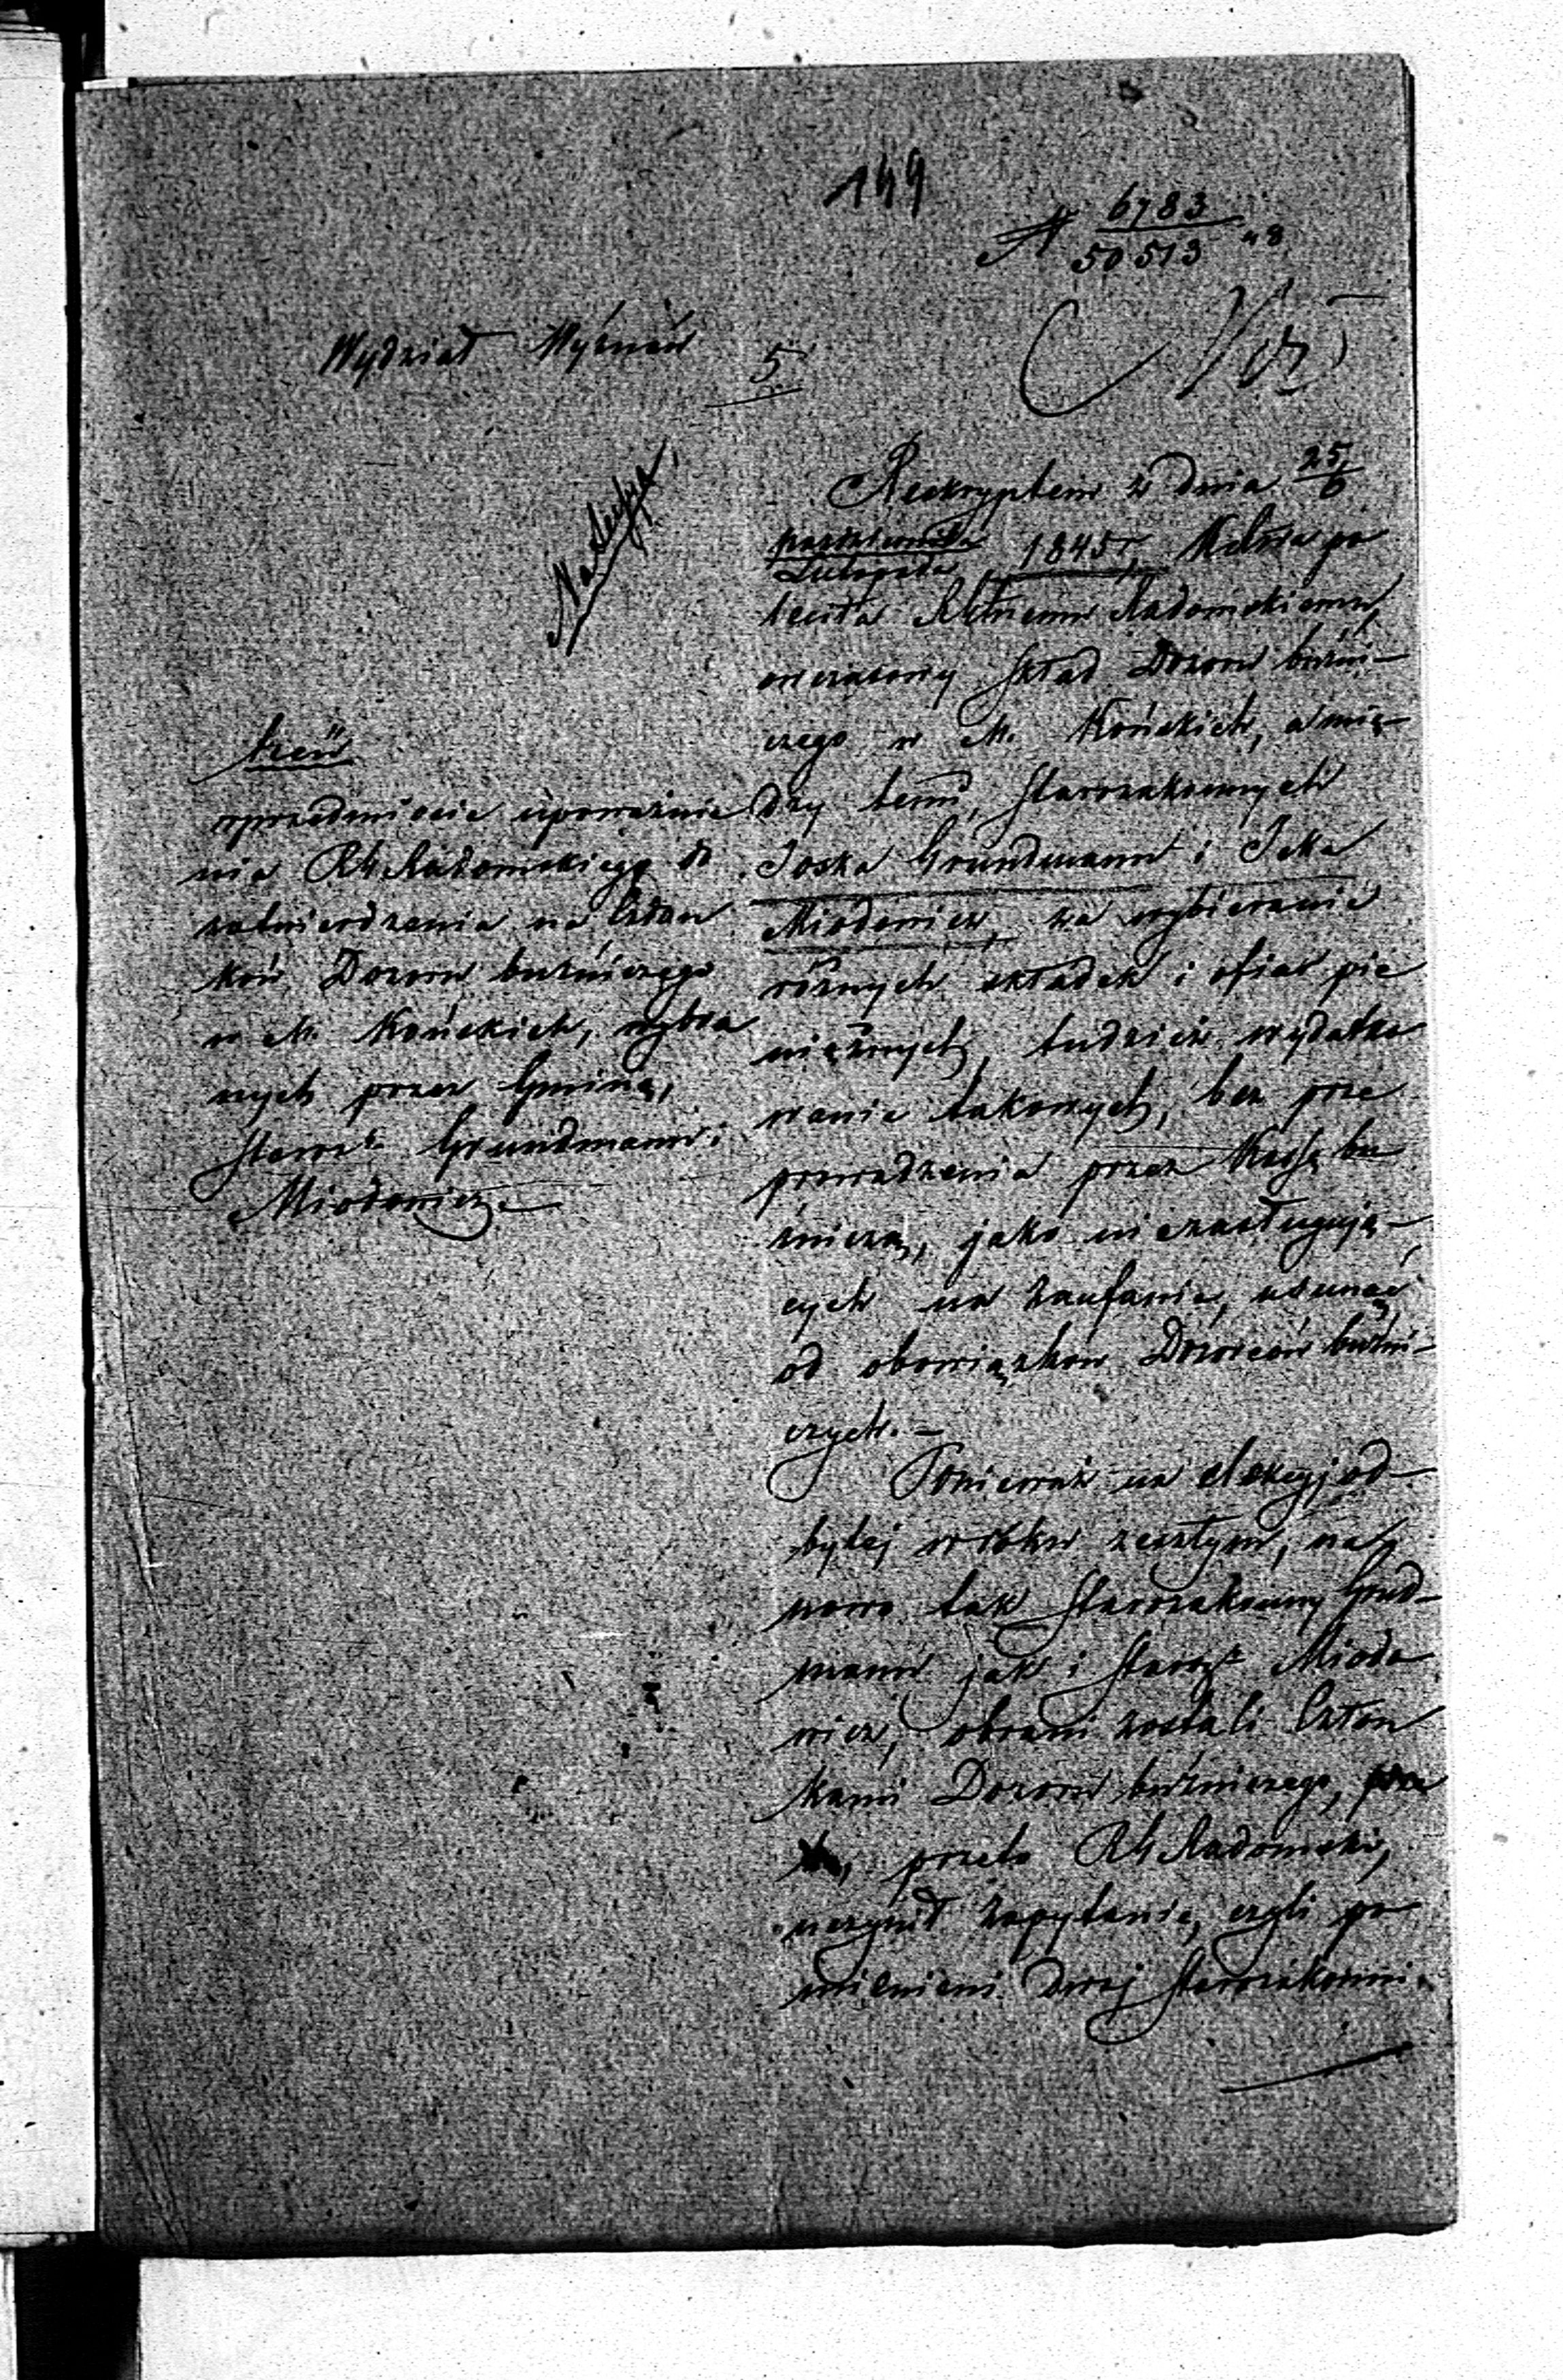 149
N 6783
50513 48
Wydział Wyznań
5
Nota
treść
wprzedmiocie upoważnie
nia RG Radomskiego do
zatwierdzenia na Człon
ków Dozoru bużniczego
w M. Końskich, wybra
nych przez Gminę,
Staroz. Grundmann i
Miodowicz.
Reskryptem z dnia 25/6
października
Listopada 1845 r. K.
leciła Radomskiemu,
owczasowy skład Dozoru bużni-
czego w M. Końskich, a mię-
dzy temi, Starozakonnych
Joska Grundmann i Icka
Miodowicz, za wybieranie
różnych składek i ofiar pie
niężnych, tudzież wydatko
wanie takowych, bez prze
prowadzenia przez Kassę bu
żniczą, jako niezasługują-
cych na zaufanie, usunąć
od obowiązków Dozorców bużni-
czych. -
Ponieważ na elekcyj od-
bytej w roku zeszłym, na
nowo tak Starozakonny Grud-
mann jak i Staroz. Miodo
wicz, obrani zostali Człon
kami Dozoru bużniczego,
przeto RG Radomski,
uczynił zapytanie, czyli po
mienieni dwaj Starozakonni